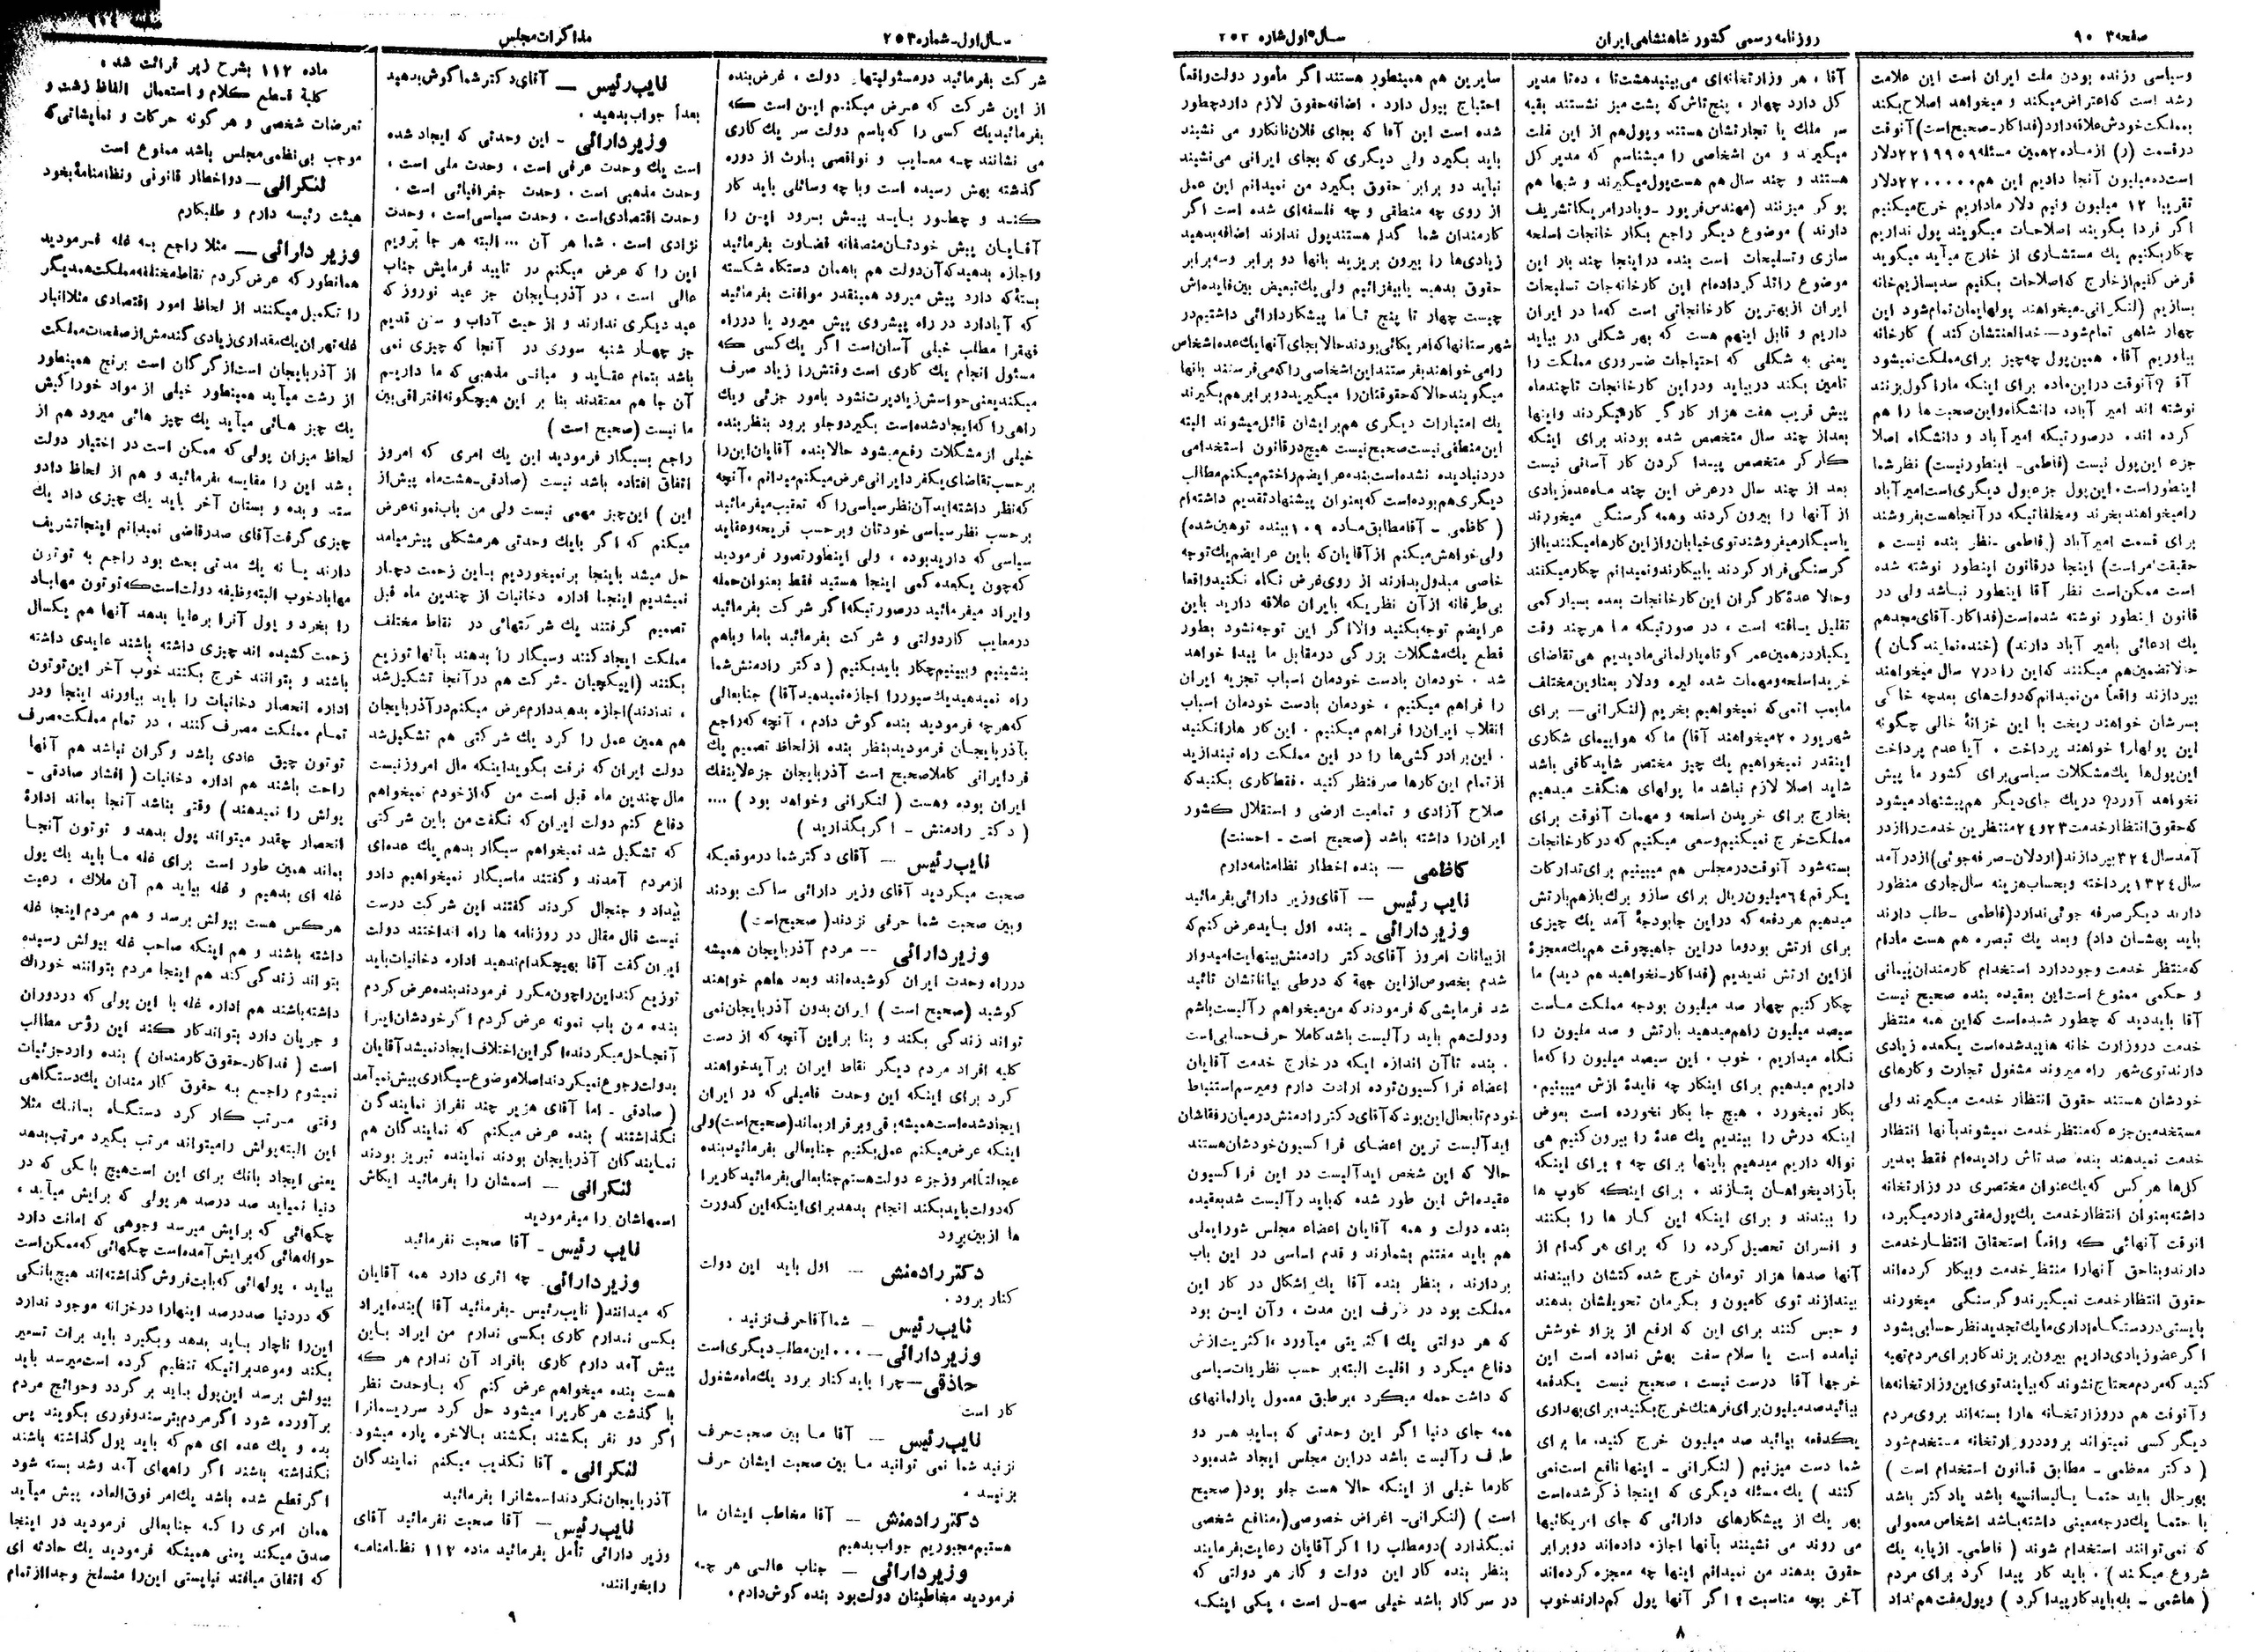 صفحه ۹۰۳
روزنامه رسمی کشور شاهنشاهی ایران
سال اول شماره ۲۵۳
و سیاسی و زنده بودن ملت ایران است این علامت
رشد است که اعتراض میکند و میخواهد اصلاح بکند
بمملکت خودش علاقه دارد (فداکار - صحیح است) آنوقت
در قسمت (ر) از ماده ۲ همین مسئله ۲۲۱۹۹۵۹ دلار
است ده میلیون آنجا دادیم این هم ۲۲۰۰۰۰۰ دلار
تقریبا ۱۲ میلیون و نیم دلار ما داریم خرج میکنیم
اگر فردا بگویند اصلاحات میگویند پول نداریم
چکار بکنیم یك مستشاری از خارج میآید میگوید
قرض کنیم از خارج که اصلاحات بکنیم سد بسازیم خانه
بسازیم (لنکرانی - میخواهند پولهایمان تمام شود این
چهار شاهی تمام شود - خدا لعنتشان کند) کارخانه
بیاوریم آقا، همین پول چه چیز برای مملکت نمیشود
آقا؟ آنوقت در این ماده برای اینکه ما را گول بزنند
نوشته اند امیر آباد، دانشگاه و این صحبت ها را هم
کرده اند، درصورتیکه امیر آباد و دانشگاه اصلا
جزء این پول نیست (فاطمی - اینطور نیست) نظر شما
اینطور است، این پول جزء پول دیگری است امیر آباد
را میخواهند بخرند و مخلفاتیکه در آنجا هست بفروشند
برای قسمت امیر آباد (فاطمی - نظر بنده نیست،
حقیقت امر است) اینجا در قانون اینطور نوشته شده
است ممکن است نظر آقا اینطور نباشد ولی در
قانون اینطور نوشته شده است (فداکار - آقای مجدهم
یك ادعائی بامیر آباد دارند) (خنده نمایندگان)
حالا تضمین هم میکنند که این را در ۷ سال میخواهند
بپردازند واقعاً من نمیدانم که دولت های بعد چه خاکی
بسرشان خواهند ریخت با این خزانۀ خالی چگونه
این پولها را خواهند پرداخت، آیا عدم پرداخت
این پولها یك مشکلات سیاسی برای کشور ما پیش
نخواهد آورد؟ در یك جای دیگر هم پیشنهاد میشود
که حقوق انتظار خدمت ۲۳ و ۲۴ منتظرین خدمت را از در
آمد سال ۳۲۴ بپردازند (اردلان - صرفه جوئی) از درآمد
سال ۱۳۲۴ پرداخته و بحساب هزینه سال جاری منظور
دارند دیگر صرفه جوئی ندارد (فاطمی - طلب دارند
باید بهشان داد) و بعد یك تبصره هم هست مادام
که منتظر خدمت وجود دارد استخدام کارمندان پیمانی
و حکمی ممنوع است این بعقیده بنده صحیح نیست
آقا باید دید که چطور شده است که این همه منتظر
خدمت در وزارت خانه ها پیدا شده است یکعده زیادی
دارند توی شهر راه میروند مشغول تجارت و کارهای
خودشان هستند حقوق انتظار خدمت میگیرند ولی
مستخدمین جزء که منتظر خدمت نمیشوند بآنها انتظار
خدمت نمیدهند بنده صد تاش را دیده ام فقط مدیر
کل ها هر کس که یك عنوان مختصری در وزارتخانه
داشته بعنوان انتظار خدمت یك پول مفتی دارد میگیرد،
آنوقت آنهائی که واقعاً استحقاق انتظار خدمت
دارند و بناحق آنها را منتظر خدمت و بیکار کرده اند
حقوق انتظار خدمت نمیگیرند و گرسنگی میخورند
بایستی در دستگاه اداری ما یك تجدید نظر حسابی بشود
اگر عضو زیادی داریم بیرون بریزند کار برای مردم تهیه
کنید که مردم محتاج نشوند که بیایند توی این وزارتخانه ها
و آنوقت هم در وزارتخانه ها را بسته اند بروی مردم
دیگر کسی نمیتواند برود در وزارتخانه مستخدم شود
( دکتر معظمی - مطابق قانون استخدام است )
بهر حال باید حتما یا لیسانسیه باشد یا دکتر باشد
یا حتما یك درجه معینی داشته باشد اشخاص معمولی
که نمی توانند استخدام شوند ( فاطمی - از پایه یك
شروع میکند ). باید کار پیدا کرد برای مردم
( هاشمی - بله باید کار پیدا کرد ) و پول مفت هم نداد
آقا، هر وزارتخانه ای می بینید هشت تا، ده تا مدیر
کل دارد چهار، پنج تاش که پشت میز نشستند بقیه
سر ملك یا تجارتشان هستند و پول هم از این ملت
میگیرند و من اشخاصی را میشناسم که مدیر کل
هستند و چند سال هم هست پول میگیرند و شبها هم
پوکر میزنند (مهندس فریور - و یا در امریکا تشریف
دارند ) موضوع دیگر راجع بکار خانجات اسلحه
سازی و تسلیحات است بنده در اینجا چند بار این
موضوع را تذکر داده ام این کارخانه جات تسلیحات
ایران از بهترین کارخانجاتی است که ما در ایران
داریم و قابل اینهم هست که بهر شکلی در بیاید
یعنی به شکلی که احتیاجات ضروری مملکت را
تامین بکند در بیاید و در این کارخانجات تا چند ماه
پیش قریب هفت هزار کارگر کار میکردند و اینها
بعد از چند سال متخصص شده بودند برای اینکه
کارگر متخصص پیدا کردن کار آسانی نیست
بعد از چند سال در عرض این چند ماه عده زیادی
از آنها را بیرون کردند و همه گرسنگی میخورند
یا سیگار میفروشند توی خیابان و از این کارها میکنند یا از
گرسنگی فرار کردند یا بیکارند و نمیدانم چکار میکنند
و حالا عدۀ کارگران این کارخانجات بعده بسیار کمی
تقلیل یافته است، در صورتیکه ما هر چند وقت
یکبار در همین عمر کوتاه پارلمانی ما دیدیم هی تقاضای
خرید اسلحه و مهمات شده لیره و دلار بعناوین مختلف
ما بمب اتمی که نمیخواهیم بخریم (لنکرانی - برای
شهریور ۲۰ میخواهند آقا) ما که هواپیمای شکاری
اینقدر نمیخواهیم یك چیز مختصر شاید کافی باشد
شاید اصلا لازم نباشد ما پولهای هنگفت میدهیم
بخارج برای خریدن اسلحه و مهمات آنوقت برای
مملکت خرج نمیکنیم و سعی میکنیم که در کارخانجات
بسته شود آنوقت در مجلس هم میبینیم برای تدارکات
یکرقم ۶۴ میلیون ریال برای ساز و برك باز هم بارتش
میدهیم هر دفعه که در این جا بودجۀ آمد یك چیزی
برای ارتش بود و ما در این جا هیچوقت هم یك معجزۀ
از این ارتش ندیدیم (فداکار - نخواهید هم دید) ما
چکار کنیم چهار صد میلیون بودجه مملکت ماست
سیصد میلیون را هم میدهید بارتش و صد ملیون را
نگاه میداریم، خوب، این سیصد میلیون را که ما
داریم میدهیم برای اینکار چه فایدۀ ازش میبینیم.
بکار نمیخورد، هیچ جا بکار نخورده است بعوض
اینکه درش را ببندیم یك عدۀ را بیرون کنیم هی
نواله داریم میدهیم باینها برای چه؟ برای اینکه
بآزادیخواهان بتازند، برای اینکه کلوپ ها
را ببندند و برای اینکه این کار ها را بکنند
و افسران تحصیل کرده را که برای هر کدام از
آنها صدها هزار تومان خرج شده کتشان را ببندند
بیندازند توی کامیون و بکرمان تحویلشان بدهند
و حبس کنند برای این که ارفع از یزاو خوشش
نیامده است یا سلام سفت بهش نداده است این
خرجها آقا درست نیست، صحیح نیست یکدفعه
بیائید صد میلیون برای فرهنك خرج بکنید، برای بهداری
یکدفعه بیائید صد میلیون خرج کنید، ما برای
شما دست میزنیم ( لنکرانی - اینها نافع است نمی
کنند ) یك مسئله دیگری که اینجا ذکر شده است
بهر یك از پیشکارهای دارائی که جای امریکائیها
می روند می نشینند بآنها اجازه داده اند دو برابر
حقوق بدهند من نمیدانم اینها چه معجزه کرده اند
آخر بچه مناسبت؟ اگر آنها پول کم دارند خوب
سایرین هم همینطور هستند اگر مأمور دولت واقعاً
احتیاج بپول دارد، اضافه حقوق لازم دارد چطور
شده است این آقا که بجای فلان نانکارو می نشیند
باید بگیرد ولی دیگری که بجای ایرانی می نشیند
نباید دو برابر حقوق بگیرد من نمیدانم این عمل
از روی چه منطقی و چه فلسفه ای شده است اگر
کارمندان شما گدا هستند پول ندارند اضافه بدهید
زیادی ها را بیرون بریزید بآنها دو برابر و سه برابر
حقوق بدهید یا بیفزائیم ولی یك تبعیض بین فایده اش
چیست چهار تا پنج تا ما پیشکار دارائی داشتیم در
شهرستانها که امریکائی بودند حالا بجای آنها یك عده اشخاص
را می خواهند بفرستند این اشخاصی را که می فرستند بآنها
میگویند حالا که حقوقتان را میگیرید دو برابر هم بگیرند
یك امتیازات دیگری هم برایشان قائل میشوند البته
این منطقی نیست صحیح نیست هیچ در قانون استخدامی
در دنیا دیده نشده است بنده عرایضم را ختم میکنم مطالب
دیگری هم بوده است که بعنوان پیشنهاد تقدیم داشته ام
( کاظمی - آقا مطابق ماده ۱۰۹ ببنده توهین شده)
ولی خواهش میکنم از آقایان که باین عرایضم یك توجه
خاصی مبذول بدارند از روی غرض نگاه نکنید واقعا
بی طرفانه از آن نظریکه بایران علاقه دارید باین
عرایضم توجه بکنید والا اگر این توجه نشود بطور
قطع یك مشکلات بزرگی در مقابل ما پیدا خواهد
شد، خودمان بادست خودمان اسباب تجزیه ایران
را فراهم میکنیم، خودمان بادست خودمان اسباب
انقلاب ایران را فراهم میکنیم، این کارها را نکنید
، این برادر کشی ها را در این مملکت راه نیندازید
از تمام این کارها صرفنظر کنید، فقط کاری بکنید که
صلاح آزادی و تمامیت ارضی و استقلال کشور
ایران را داشته باشد (صحیح است - احسنت)
کاظمی - بنده اخطار نظامنامه دارم
نایب رئیس - آقای وزیر دارائی بفرمائید
وزیر دارائی - بنده اول باید عرض کنم که
از بیانات امروز آقای دکتر رادمنش بینهایت امیدوار
شدم بخصوص از این جهة که در طی بیاناتشان تائید
شد فرمایشی که فرمودند که من میخواهم رآلیست باشم
و دولت هم باید رآلیست باشد کاملا حرف حسابی است
، بنده تا آن اندازه ایکه در خارج خدمت آقایان
اعضاء فراکسیون توده ارادت دارم و میرسم استنباط
خودم تا بحال این بود که آقای دکتر رادمنش در میان رفقاشان
ایدآلیست ترین اعضای فراکسیون خودشان هستند
حالا که این شخص ایدآلیست در این فراکسیون
عقیده اش این طور شده که باید رآلیست شد بعقیده
بنده دولت و همه آقایان اعضاء مجلس شورایملی
هم باید مغتنم بشمارند و قدم اساسی در این باب
بردارند، بنظر بنده آقا یك اشکال در کار این
مملکت بود در ظرف این مدت، و آن این بود
که هر دولتی یك اکثریتی میآورد، اکثریت ازش
دفاع میکرد و اقلیت البته بر حسب نظریات سیاسی
که داشت حمله میکرد، بر طبق معمول پارلمانهای
همه جای دنیا اگر این وحدتی که باید هر دو
طرف رآلیست باشد در این مجلس ایجاد شده بود
کارما خیلی از اینکه حالا هست جلو بود( صحیح
است ) (لنکرانی - اغراض خصوصی (منافع شخصی
نمیگذارد ) دو مطلب را اگر آقایان رعایت بفرمایند
بنظر بنده کار این دولت و کار هر دولتی که
در سر کار باشد خیلی سهل است، یکی اینکه
۸
سال اول - شماره ۲۵۳
مذاکرات مجلس
شرکت بفرمائید در مسئولیتهای دولت، غرض بنده
از این شرکت که عرض میکنم این است که
بفرمائید یك کسی را که باسم دولت سر یك کاری
می نشانند چه معایب و نواقصی بارث از دوره
گذشته بهش رسیده است و با چه وسائلی باید کار
کند و چطور باید پیش برود این را
آقایان پیش خودتان منصفانه قضاوت بفرمائید
و اجازه بدهید که آن دولت هم باهمان دستگاه شکسته
بستۀ که دارد پیش میرود همینقدر موافقت بفرمائید
که آیا دارد در راه پیشروی پیش میرود یا در راه
قهقرا مطلب خیلی آسان است اگر یك کسی که
مسئول انجام یك کاری است وقتش را زیاد صرف
میکند یعنی حواسش زیاد پرت نشود بامور جزئی و یك
راهی را که ایجاد شده است بگیرد و جلو برود بنظر بنده
خیلی از مشکلات رفع میشود حالا بنده آقایان این را
بر حسب تقاضای یکفرد ایرانی عرض میکنم میدانم، آنچه
که نظر داشته اید آن نظر سیاسی را که تعقیب میفرمائید
بر حسب نظر سیاسی خودتان و بر حسب قریحه و عقاید
سیاسی که دارید بوده، ولی اینطور تصور فرمودید
که چون یکعده کمی اینجا هستید فقط بعنوان حمله
و ایراد میفرمائید در صورتیکه اگر شرکت بفرمائید
در معایب کار دولتی و شرکت بفرمائید باما و باهم
بنشینیم و ببینیم چکار باید بکنیم ( دکتر رادمنش شما
راه نمیدهید یك سیور را اجازه نمیدهید آقا) جنابعالی
که هر چه فرمودید بنده گوش دادم، آنچه که راجع
بآذربایجان فرمودید بنظر بنده از لحاظ تصمیم یك
فرد ایرانی کاملا صحیح است آذربایجان جزء لاینفك
ایران بوده و هست ( لنکرانی و خواهد بود ) ....
( دکتر رادمنش - اگر بگذارید )
نایب رئیس - آقای دکتر شما در موقعیکه
صحبت میکردید آقای وزیر دارائی ساکت بودند
و بین صحبت شما حرفی نزدند( صحیح است)
وزیر دارائی -- مردم آذربایجان همیشه
در راه وحدت ایران کوشیده اند و بعد ها هم خواهند
کوشید (صحیح است ) ایران بدون آذربایجان نمی
تواند زندگی بکند و بنا بر این آنچه که از دست
کلیه افراد مردم دیگر نقاط ایران بر آید خواهند
کرد برای اینکه این وحدت فامیلی که در ایران
ایجاد شده است همیشه باقی و بر قرار بماند (صحیح است) ولی
اینکه عرض میکنم عمل بکنیم جنابعالی بفرمائید بنده
عجالتاً امروز جزء دولت هستم جنابعالی بفرمائید کار یرا
که دولت باید بکند انجام بدهد برای اینکه این کدورت
ها از بین برود
دکتر رادمنش - اول باید این دولت
کنار برود.
نایب رئیس - شما آقا حرف نزنید.
وزیر دارائی - ... این مطلب دیگری است
حاذقی - چرا باید کنار برود یك ماه مشغول
کار است
نایب رئیس - آقا ما بین صحبت حرف
نزنید شما نمی توانید ما بین صحبت ایشان حرف
بزنید.
دکتر رادمنش - آقا مخاطب ایشان ما
هستیم مجبوریم جواب بدهیم
وزیر دارائی - جناب عالی هر چه
فرمودید مخاطبتان دولت بود بنده گوش دادم.
نایب رئیس - آقای دکتر شما گوش بدهید
بعداً جواب بدهید.
وزیر دارائی - این وحدتی که ایجاد شده
است یك وحدت عرفی است، وحدت ملی است،
وحدت مذهبی است، وحدت جغرافیائی است،
وحدت اقتصادی است، وحدت سیاسی است، وحدت
نژادی است، شما هر آن ... البته هر جا برویم
این را که عرض میکنم در تایید فرمایش جناب
عالی است، در آذربایجان جز عید نوروز که
عید دیگری ندارند و از حیث آداب و سنن قدیم
جز چهار شنبه سوری در آنجا که چیزی نمی
باشد بتمام عقاید و مبانی مذهبی که ما داریم
آن جا هم معتقدند بنا بر این هیچگونه افتراقی بین
ما نیست (صحیح است )
راجع بسیگار فرمودید این یك امری که امروز
اتفاق افتاده باشد نیست (صادقی - هشت ماه پیش از
این ) این چیز مهمی نیست ولی من باب نمونه عرض
میکنم که اگر بایك وحدتی هر مشکلی پیش میامد
حل میشد باینجا بر نمیخوردیم باین زحمت دچار
نمیشدیم اینجا اداره دخانیات از چندین ماه قبل
تصمیم گرفتند یك شرکتهائی در نقاط مختلف
مملکت ایجاد کنند و سیگار را بدهند بآنها توزیع
بکنند (ایپکچیان - شرکت هم در آنجا تشکیل شد
، ندادند) اجازه بدهید دارم عرض میکنم در آذربایجان
هم همین عمل را کرد یك شرکتی هم تشکیل شد
دولت ایران که نرفت بگوید اینکه مال امروز نیست
مال چندین ماه قبل است من که از خودم نمیخواهم
دفاع کنم دولت ایران که نگفت من باین شرکتی
که تشکیل شد نمیخواهم سیگار بدهم یك عده ای
از مردم آمدند و گفتند ما سیگار نمیخواهیم داد و
بیداد و جنجال کردند گفتند این شرکت درست
نیست قال مقال در روزنامه ها راه انداختند دولت
ایران گفت آقا بهیچکدام ندهید اداره دخانیات باید
توزیع کند این را چون مکرر فرمودند بنده عرض کردم
بنده من باب نمونه عرض کردم اگر خودشان اینرا
آنجا حل میکردند، اگر این اختلاف ایجاد نمیشد آقایان
بدولت رجوع نمیکردند اصلا موضوع سیگاری پیش نمیآمد
( صادقی - اما آقای هژیر چند نفر از نمایندگان
نگذاشتند ) بنده عرض میکنم که نمایندگان هم
نمایندگان آذربایجان بودند نماینده تبریز بودند
لنکرانی - اسمشان را بفرمائید ایکاش
اسمهاشان را میفرمودید
نایب رئیس - آقا صحبت نفرمائید
وزیر دارائی - چه اثری دارد همه آقایان
که میدانند( نایب رئیس - بفرمائید آقا )بنده ایراد
بکسی ندارم کاری بکسی ندارم من ایراد باین
پیش آمد دارم کاری بافراد آن ندارم هر که
هست بنده میخواهم عرض کنم که با وحدت نظر
با گذشت هر کاریرا میشود حل کرد سر ریسمانرا
اگر دو نفر بکشند بکشند بالاخره پاره میشود.
لنکرانی - آقا تکذیب میکنم نمایندگان
آذربایجان نکردند اسمشانرا بفرمائید
نایب رئیس - آقا صحبت نفرمائید آقای
وزیر دارائی تأمل بفرمائید ماده ۱۱۲ نظامنامه
را بخوانند.
ماده ۱۱۲ بشرح زیر قرائت شد:
کلیۀ قطع کلام و استعمال الفاظ زشت و
تعرضات شخصی و هر گونه حرکات و نمایشاتی که
موجب بی نظمی مجلس باشد ممنوع است
لنکرانی - دو اخطار قانونی و نظامنامۀ بخود
هیئت رئیسه دارم و طلبکارم
وزیر دارائی - مثلا راجع به غله فرمودید
همانطور که عرض کردم نقاط مختلفه مملکت همدیگر
را تکمیل میکنند از لحاظ امور اقتصادی مثلا انبار
غله تهران یك مقداری زیادی گندمش از صفحات مملکت
از آذربایجان است از گرگان است برنج همینطور
از رشت میآید همینطور خیلی از مواد خوراکیش
یك چیز هائی میآید یك چیز هائی میرود هم از
لحاظ میزان پولی که ممکن است در اختیار دولت
باشد این را مقایسه بفرمائید و هم از لحاظ داد و
ستد و بده و بستان آخر باید یك چیزی داد یك
چیزی گرفت آقای صدر قاضی نمیدانم اینجا تشریف
دارند یا نه یك مدتی بحث بود راجع به توتون
مهاباد خوب البته وظیفه دولت است که توتون مهاباد
را بخرد و پول آنرا برعایا بدهد آنها هم یکسال
زحمت کشیده اند چیزی داشته باشند عایدی داشته
باشند و بتوانند خرج بکنند خوب آخر این توتون
اداره انحصار دخانیات را باید بیاورند اینجا و در
تمام مملکت مصرف کنند، در تمام مملکت مصرف
توتون چپق عادی باشد و گران نباشد هم آنها
راحت باشند هم اداره دخانیات ( افشار صادقی -
پولش را نمیدهند ) وقتی بناشد آنجا بماند ادارۀ
انحصار چقدر میتواند پول بدهد و توتون آنجا
بماند همین طور است برای غله ما باید یك پول
غله ای بدهیم و غله بیاید هم آن ملاك، رعیت
هر کس هست بپولش برسد و هم مردم اینجا غله
داشته باشند و هم اینکه صاحب غله بپولش رسیده
بتواند زندگی کند هم اینجا مردم بتوانند خوراك
داشته باشند هم اداره غله با این پولی که در دوران
و جریان دارد بتواند کار کند این رؤس مطالب
است ( فداکار - حقوق کارمندان ) بنده وارد جزئیات
نمیشوم راجع به حقوق کارمندان یك دستگاهی
وقتی مرتب کار کرد دستگاه بانك مثلا
این البته پولش را میتواند مرتب بگیرد مرتب بدهد
یعنی ایجاد بانك برای این است هیچ بانکی که در
دنیا نمیاید صد درصد هر پولی که برایش میآید،
چکهائی که برایش میرسد وجوهی که امانت دارد
حواله هائی که برایش آمده است چکهائی که ممکن است
بیاید، پولهائی که بابت فروش گذاشته اند هیچ بانکی
که در دنیا صد درصد اینها را در خزانه موجود ندارد
این را ناچار باید بدهد و بگیرد باید برات تسعیر
بکند و موعد براتیکه تنظیم کرده است میرسد باید
بپولش برسد این پول باید بر گردد و حوائج مردم
بر آورده شود اگر مردم بترسند و فوری بگویند پس
بده و یك عده ای هم که باید پول گذاشته باشند
نگذاشته باشند اگر راههای آمد و شد بسته شود
اگر قطع شده باشد یك امر فوق العاده پیش میآید
همان امری را که جنابعالی فرمودید در اینجا
صدق میکند یعنی همینکه فرمودید یك حادثه ای
که اتفاق میافتد نبایستی این را منسلخ و جدا از تمام
۹